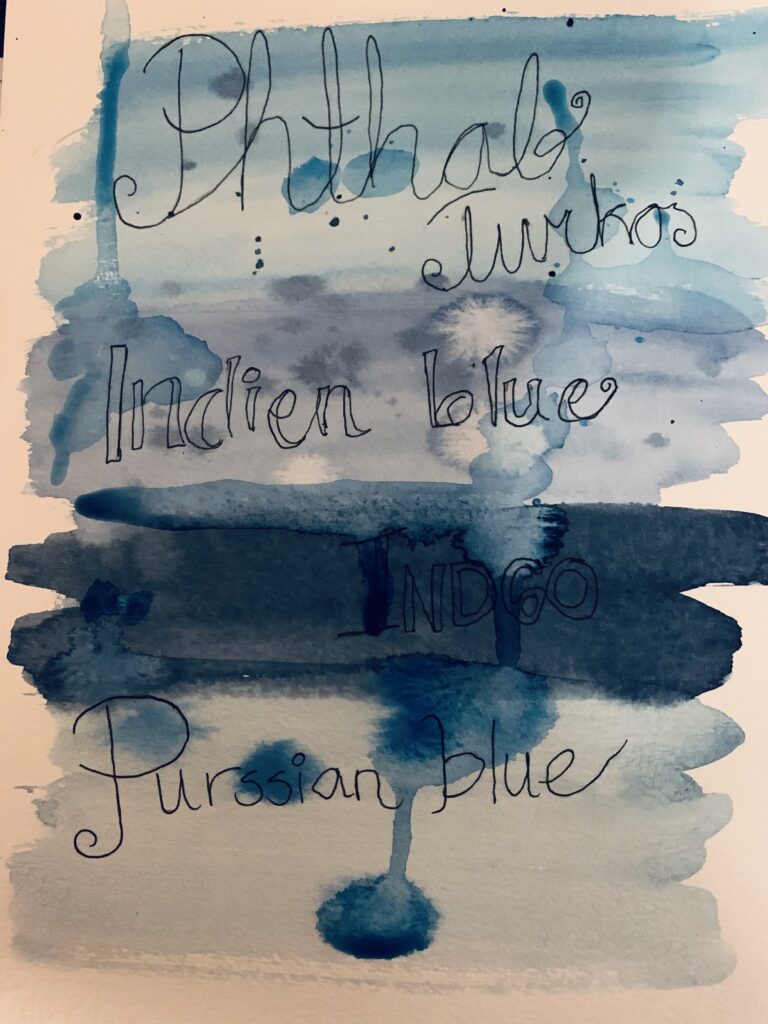 Phthalo
Turkos
Indien blue
INDGO
Purssian blue